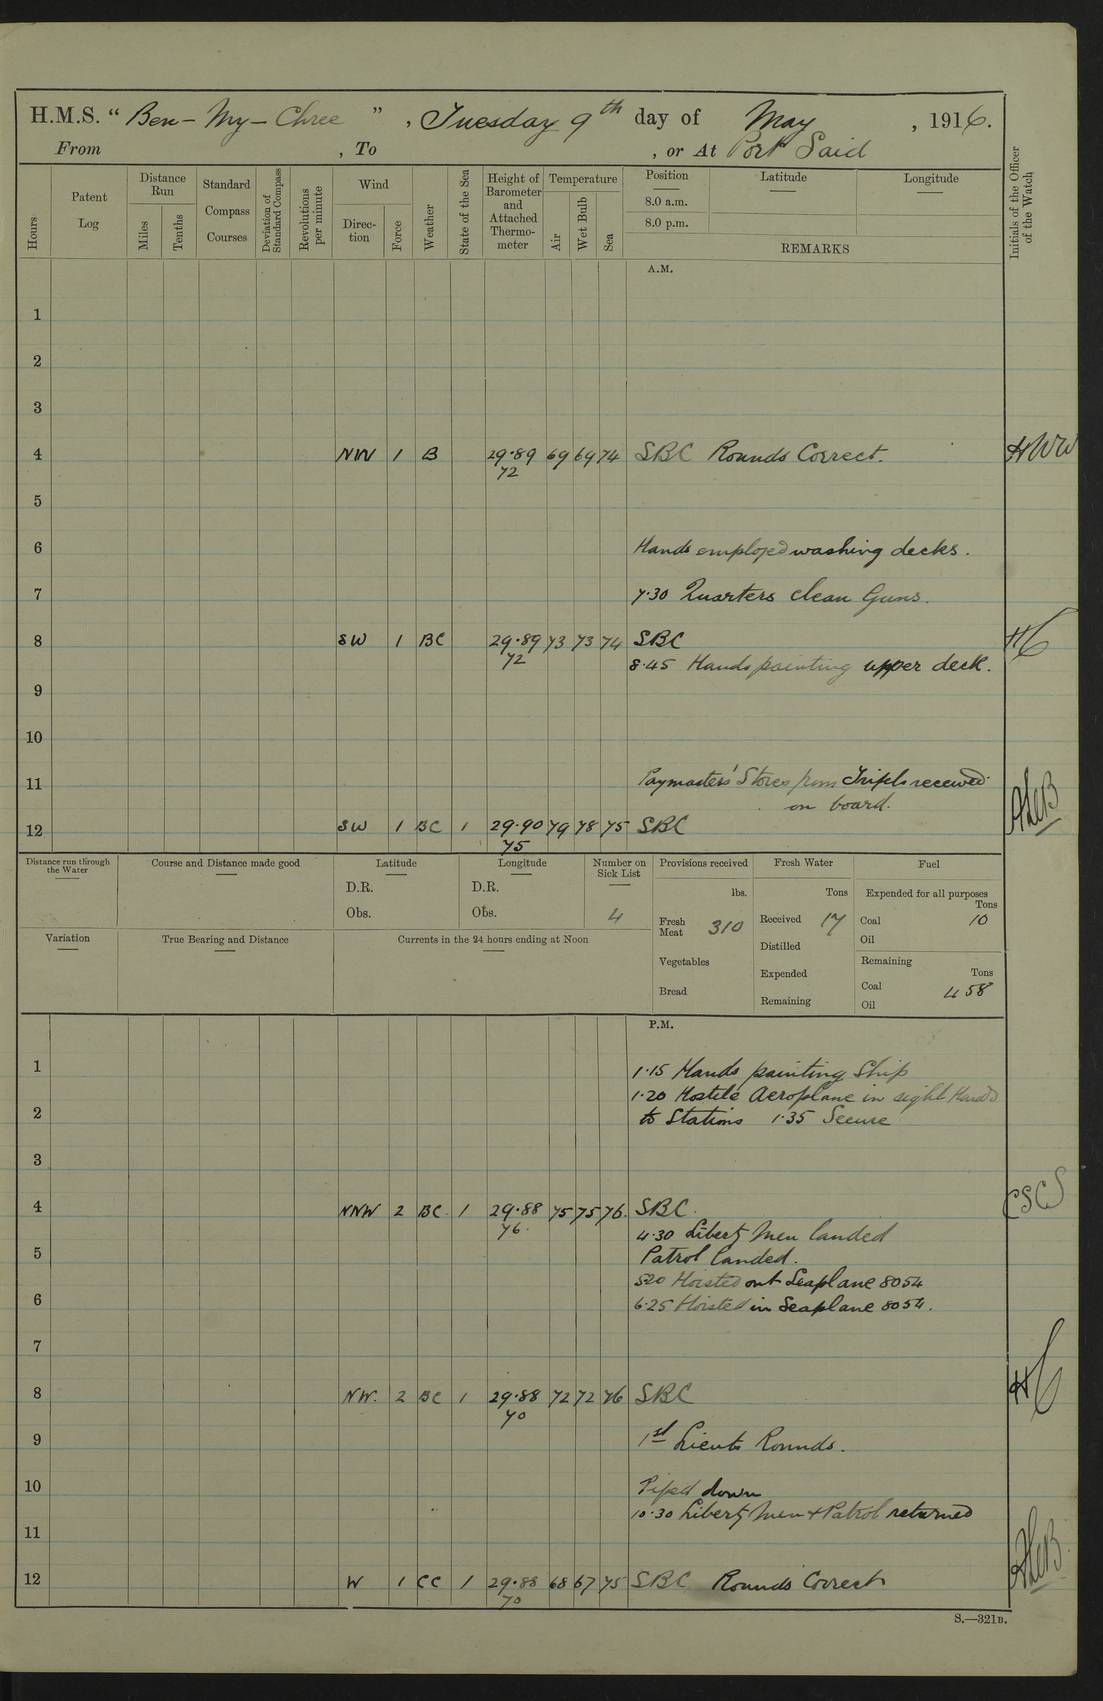 H.M.S. “ Ben-My-Chree ” , Tuesday 9th day of May , 1916.
From , To , or At Port Said
Hours
Patent Log
Distance Run
Miles
Tenths
Standard Compass Courses
Deviation of Standard Compass
Revolutions per minute
Wind
Direction
Force
Weather
State of the Sea
Height of Barometer and Attached Thermometer
Temperature
Air
Wet Bulb
Sea
Position
8.0 a.m.
8.0 p.m.
Latitude
Longitude
REMARKS
Initials of the Officer of the Watch
A.M.
1
2
3
4 NW 1 B 29.89 69 69 74 SBC Rounds Correct. HWW
72
5
6 Hands employed washing decks.
7 7.30 Quarters clean Guns.
8 SW 1 BC 29.89 73 73 74 SBC HC
72
8.45 Hands painting upper deck.
9
10
11 Paymasters' Stores from received
on board.
12 SW 1 BC 1 29.90 79 78 75 SBC
75
Distance run through the Water
Course and Distance made good
Latitude
D.R.
Obs.
Longitude
D.R.
Obs.
Number on Sick List
4
Provisions received
lbs.
Fresh Meat 310
Vegetables
Bread
Fresh Water
Tons
Received 17
Distilled
Expended
Remaining
Fuel
Expended for all purposes
Tons
Coal 10
Oil
Remaining
Tons
Coal 458
Oil
Variation
True Bearing and Distance
Currents in the 24 hours ending at Noon
P.M.
1 1.15 Hands painting Ship
1.20 Hostile Aeroplane in sight Hands
2 to Stations 1.35 Secure
3
4 NNW 2 BC 1 29.88 75 75 76. SBC. CSCS
76.
4.30 Liberty Men landed
5 Patrol landed.
520 Hoisted out Seaplane 8054
6 6.25 Hoisted in Seaplane 8054.
7
8 NW. 2 BC 1 29.88 72 72 76 SBC HC
70
9 1st Lieuts Rounds.
10 Piped down
10.30 Liberty Men & Patrol returned
11
12 W 1 CC 1 29.88 68 67 75 SBC Rounds Correct
70
S.—321B.